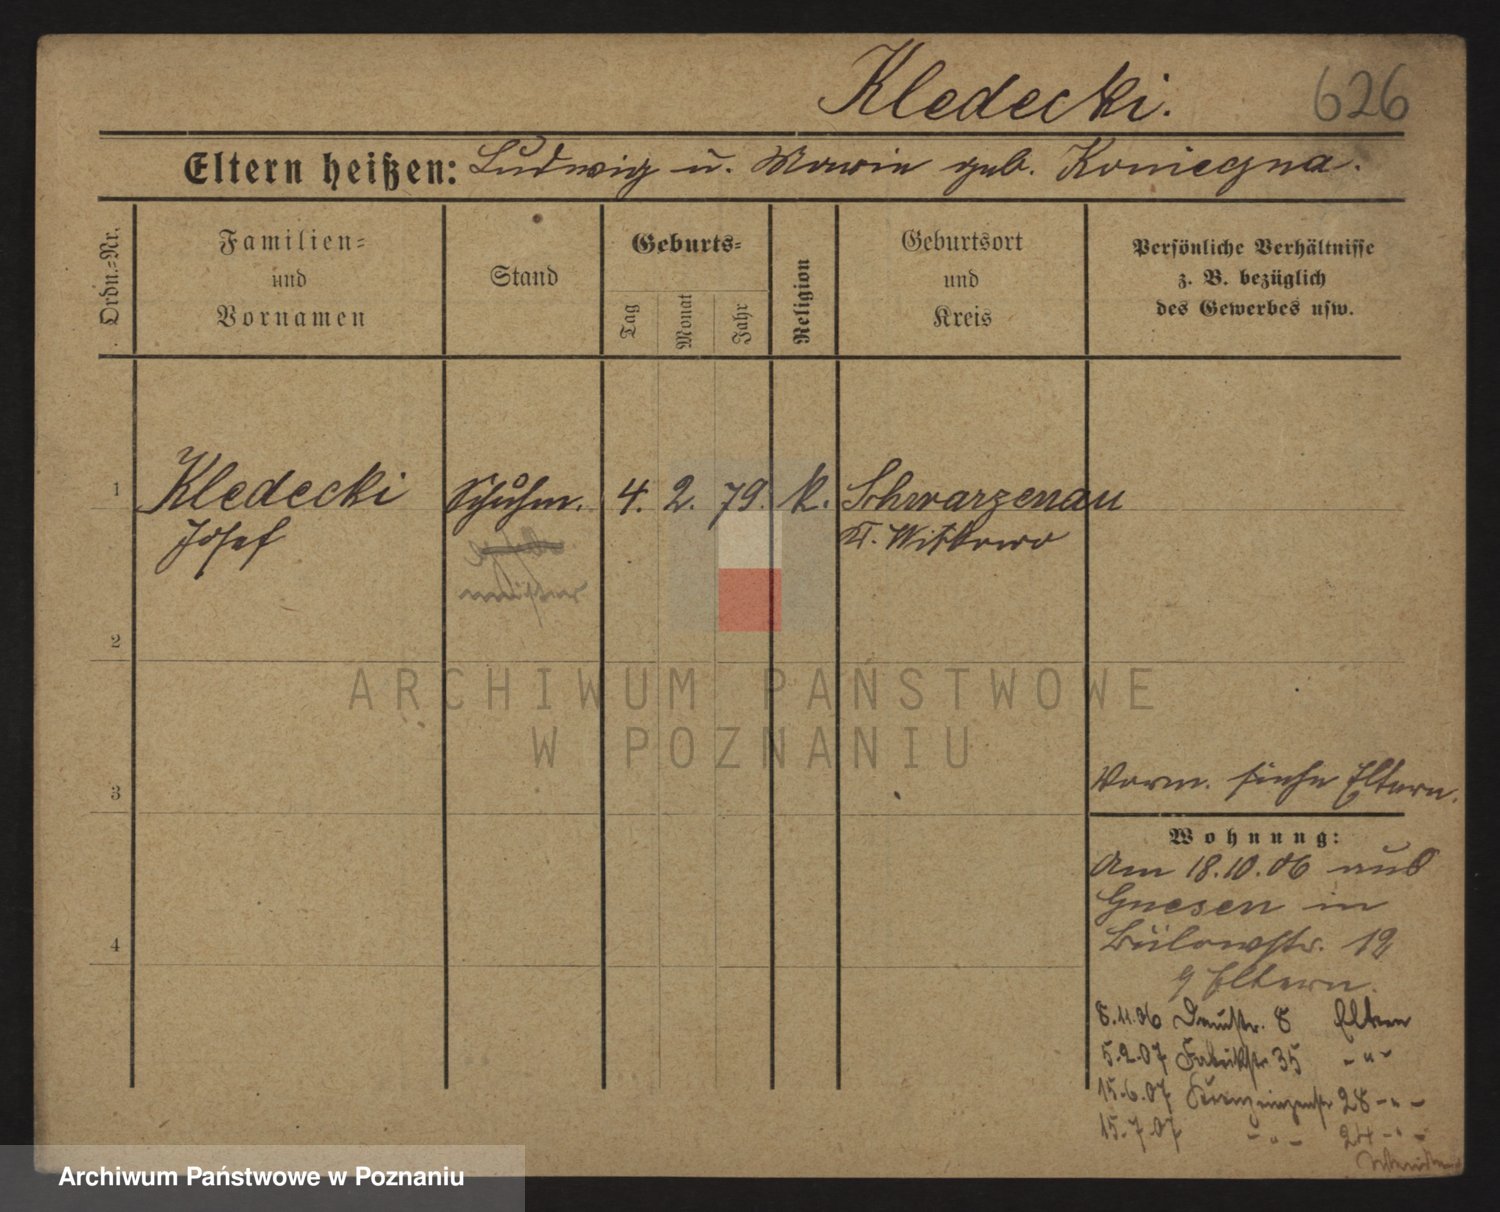 Kledecki.
626
Eltern heißen: Ludwig u. Marie geb. Konieczna.
Ordn.=Nr.
Familien=
und
Vornamen
Stand
Geburts=
Tag
Monat
Jahr
Religion
Geburtsort
und
Kreis
Persönliche Verhältnisse
z. B. bezüglich
des Gewerbes usw.
1
Kledecki
Josef
Schuhm.
4. 2. 79. k.
Schwarzenau
Kr. Witkowo
2
ARCHIWUM PAŃSTWOWE
W POZNANIU
3
Vorm. siehe Eltern.
Wohnung:
Am 18.10.06 aus
Gnesen in
Bülowstr. 19
Eltern.
4
8.11.06 8 Eltern
5.2.07 Fabrikstr 35 - " -
15.6.07 Kronprinzenstr 28 - " -
15.7.07 - " - 24 - " -
Archiwum Państwowe w Poznaniu